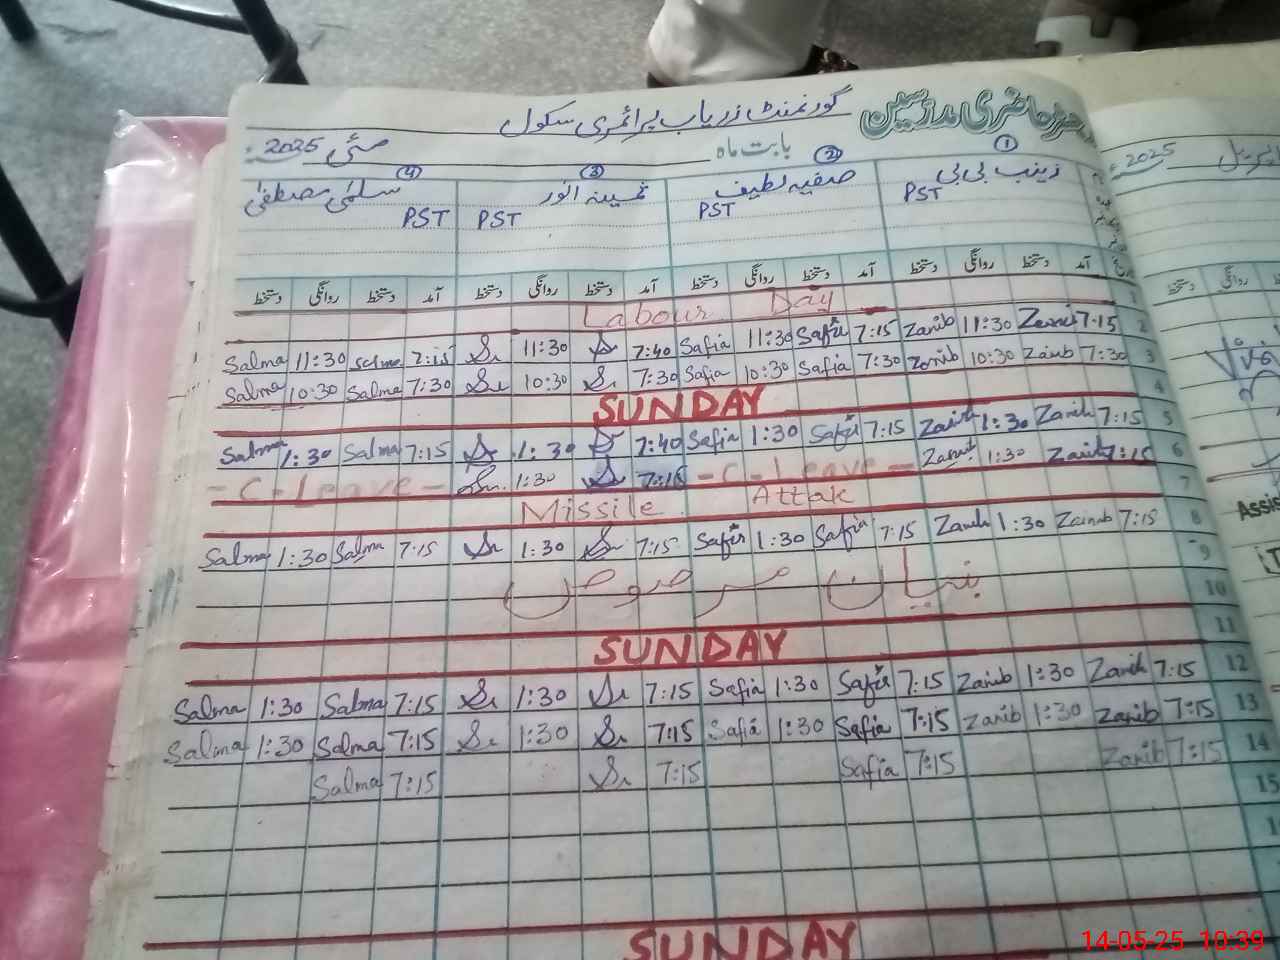 رجسٹر حاضری مدرسین
گورنمنٹ زریاب پرائمری سکول
بابت ماہ مئی 2025
① زینب بی بی PST ② صفیہ لطیف PST ③ ثمینہ انور PST ④ سلمیٰ مصطفیٰ PST
آمد دستخط روانگی دستخط آمد دستخط روانگی دستخط آمد دستخط روانگی دستخط آمد دستخط روانگی دستخط
Labour Day 1
Salma 11:30 Salma 7:15 11:30 7:40 Safia 11:30 Safia 7:15 Zanib 11:30 Zanib 7:15 2
Salma 10:30 Salma 7:30 10:30 7:30 Safia 10:30 Safia 7:30 Zanib 10:30 Zanib 7:30 3
SUNDAY 4
Salma 1:30 Salma 7:15 1:30 7:40 Safia 1:30 Safia 7:15 Zanib 1:30 Zanib 7:15 5
- C - Leave - 1:30 7:15 - C - Leave - Zanib 1:30 Zanib 7:15 6
Missile Attak 7
Salma 1:30 Salma 7:15 1:30 7:15 Safia 1:30 Safia 7:15 Zanib 1:30 Zanib 7:15 8
9
بنیان مرصوص
10
SUNDAY 11
Salma 1:30 Salma 7:15 1:30 7:15 Safia 1:30 Safia 7:15 Zanib 1:30 Zanib 7:15 12
Salma 1:30 Salma 7:15 1:30 7:15 Safia 1:30 Safia 7:15 Zanib 1:30 Zanib 7:15 13
Salma 7:15 7:15 Safia 7:15 Zanib 7:15 14
15
SUNDAY
اپریل 2025
دستخط روانگی
Assis
14-05-25 10:39